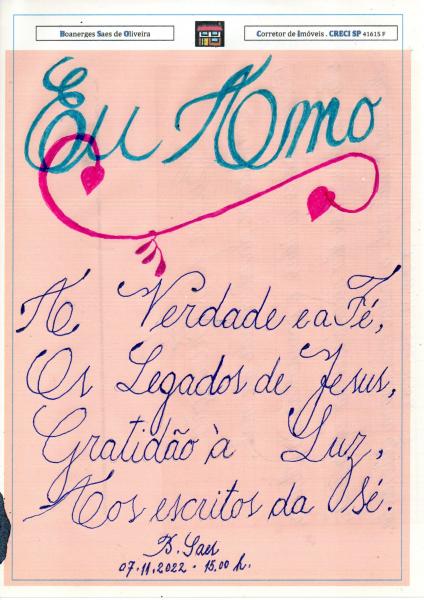 Boanerges Saes de Oliveira
Corretor de Imóveis . CRECI SP 41615 F
Eu Amo
A Verdade e a Fé,
Os Legados de Jesus,
Gratidão à Luz,
Aos escritos da Sé.
B. Saes
07.11.2022 - 15,00 h.